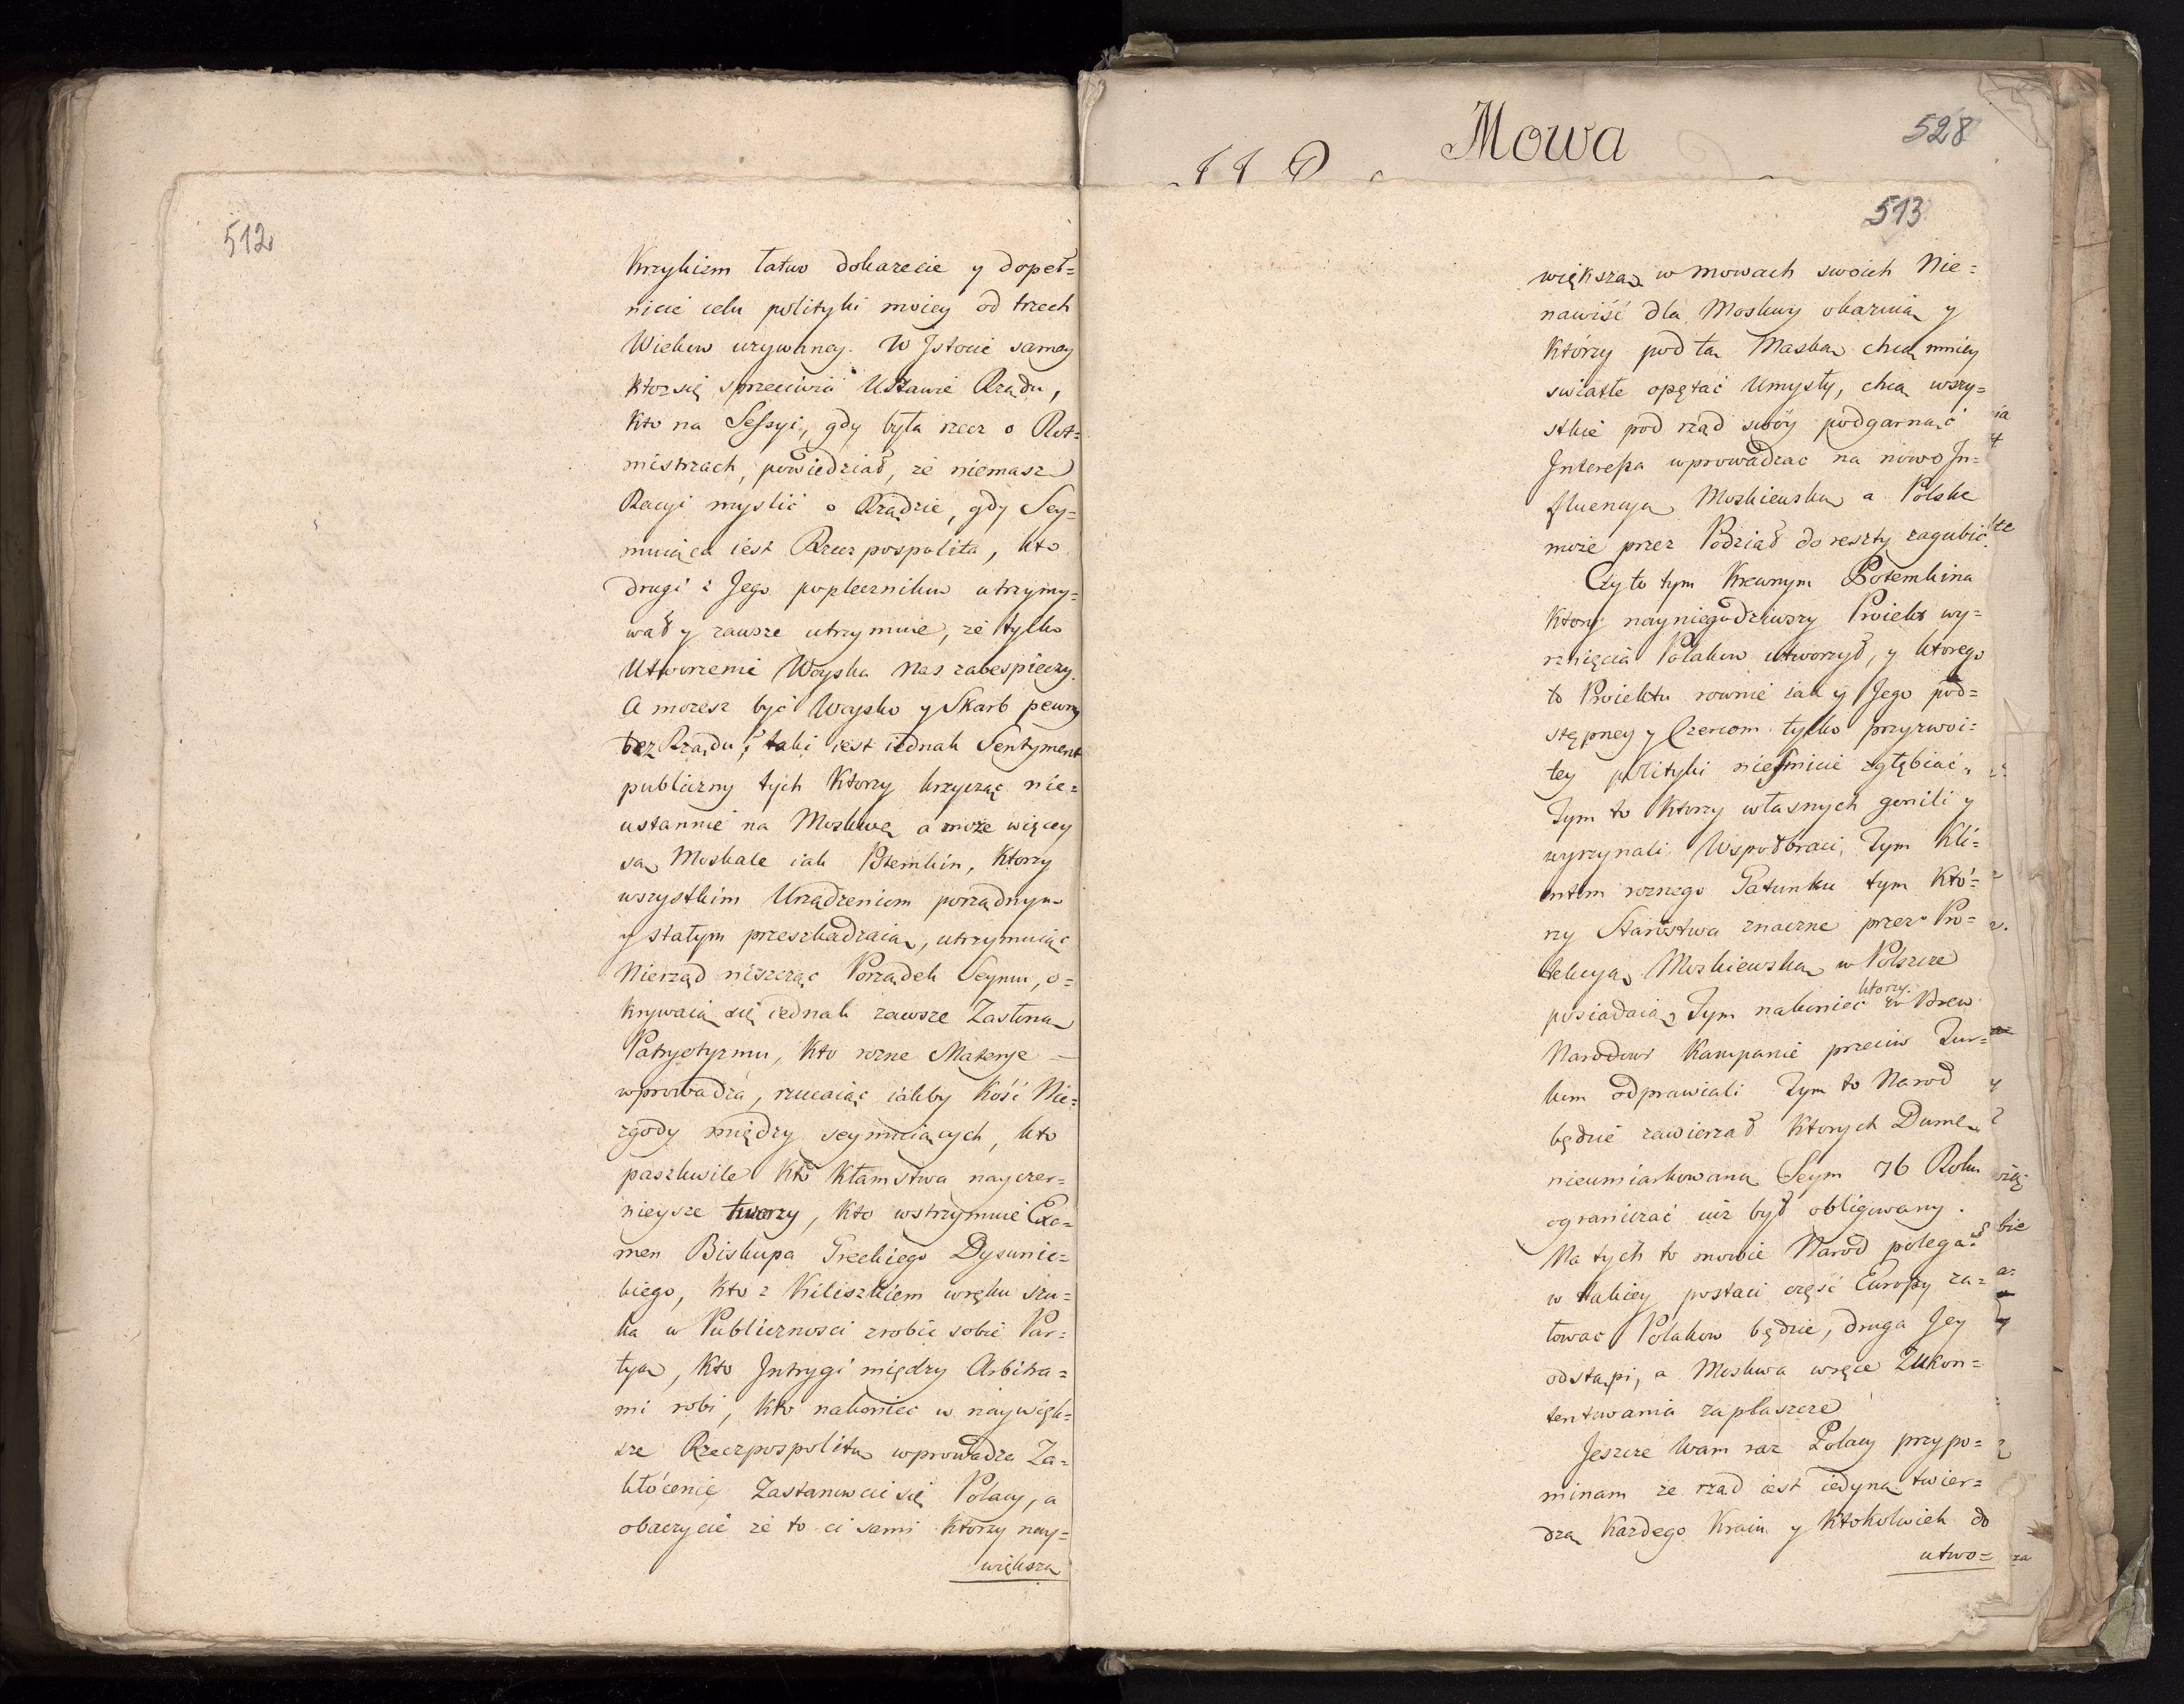 512
Krzykiem łatwo dokażecie y dopeł=
nicie celu polityki moiey od trzech
Wieków używaney. W Jstocie samey
ktoz się sprzeciwia Ustawie Rządu,
kto na Sessyi, gdy była rzecz o Rot=
mistrzach, powiedział, że niemasz
Racyi myslić o Rządzie, gdy Sey=
muiąca iest Rzecz pospolita, kto
drugi z Jego popleczników utrzymy=
wał y zawsze utrzymuie, że tylko
Utworzenie Woyska nas zabespieczy.
A możesz być Woysko y Skarb pewny
bez Rządu; taki iest iednak Sentyment
publiczny tych ktorzy krzycząc nie=
ustannie na Moskwę a może więcey
są Moskale iak Potemkin, ktorzy
wszystkim Urządzeniom porządnym
y stałym przeszkadzaią, utrzymuiąc
Nierząd niszcząc Porządek Seymu, o=
krywaią się iednak zawsze Zasłoną
Patryotyzmu, kto rozne Materye —
wprowadza, rzucaiąc iakby kość Nie=
zgody między seymuiących, kto
paszkwile kto kłamstwa nayczer=
nieysze tworzy, kto wstrzymuie Exa=
men Biskupa Greckiego Dysunic=
kiego, kto z kiliszkiem wręku szu=
ka w Publicznosci zrobić sobie Par=
tyą, kto Jntrygi między Arbitra=
mi robi, kto nakoniec w naywięk=
sze Rzeczpospolitą wprowadza Za=
kłócenie Zastanowcie się Polacy, a
obaczycie że to ci sami ktorzy nay=
większą
Mowa
528
513
większą w mowach swoich Nie=
nawiść dla Moskwy okazuią y
którzy pod tą Maską chcą mniey
swiatłe opętać Umysły, chcą wszy=
stkie pod rząd swóy podgarnąć
Jnteressa wprowadzac na nowo Jn=
fluencyą Moskiewską a Polskę
może przez Podział do reszty zagubić.
Czy to tym Krewnym Potemkina
ktory nayniegodziwszy Proiekt wy=
rżnięcia Polakow utworzył, y ktorego
to Proiektu rownie iak y Jego pod=
stępney y Czercom tylko przyzwoi=
tey polityki niesmicie zgłębiać,
Tym to ktorzy własnych gonili y
wyrzynali Wspołbraci, Tym Kli=
entom roznego Gatunku tym Któ=
rzy Starostwa znaczne przez Pro=
tekcyą Moskiewską w Polszcze
posiadaią, Tym nakoniec ktorzy w Brew
Narodowi Kampanie przeciw Tur=
kom odprawiali Tym to Narod
będzie zawierzał ktorych Dumę
nieumiarkowaną Seym 76 Roku
ograniczać iuż był obligowany.
Na tych to mowie Naród polegał
w takiey postaci część Europy ża=
łować Polakow będzie, druga Jey
odstąpi, a Moskwa wręce Zukon=
tentowania zaplaszcze
Jeszcze Wam raz Polacy przypo=
minam że rząd iest iedyną twier=
dzą Każdego Kraiu y ktokolwiek do
utwo=